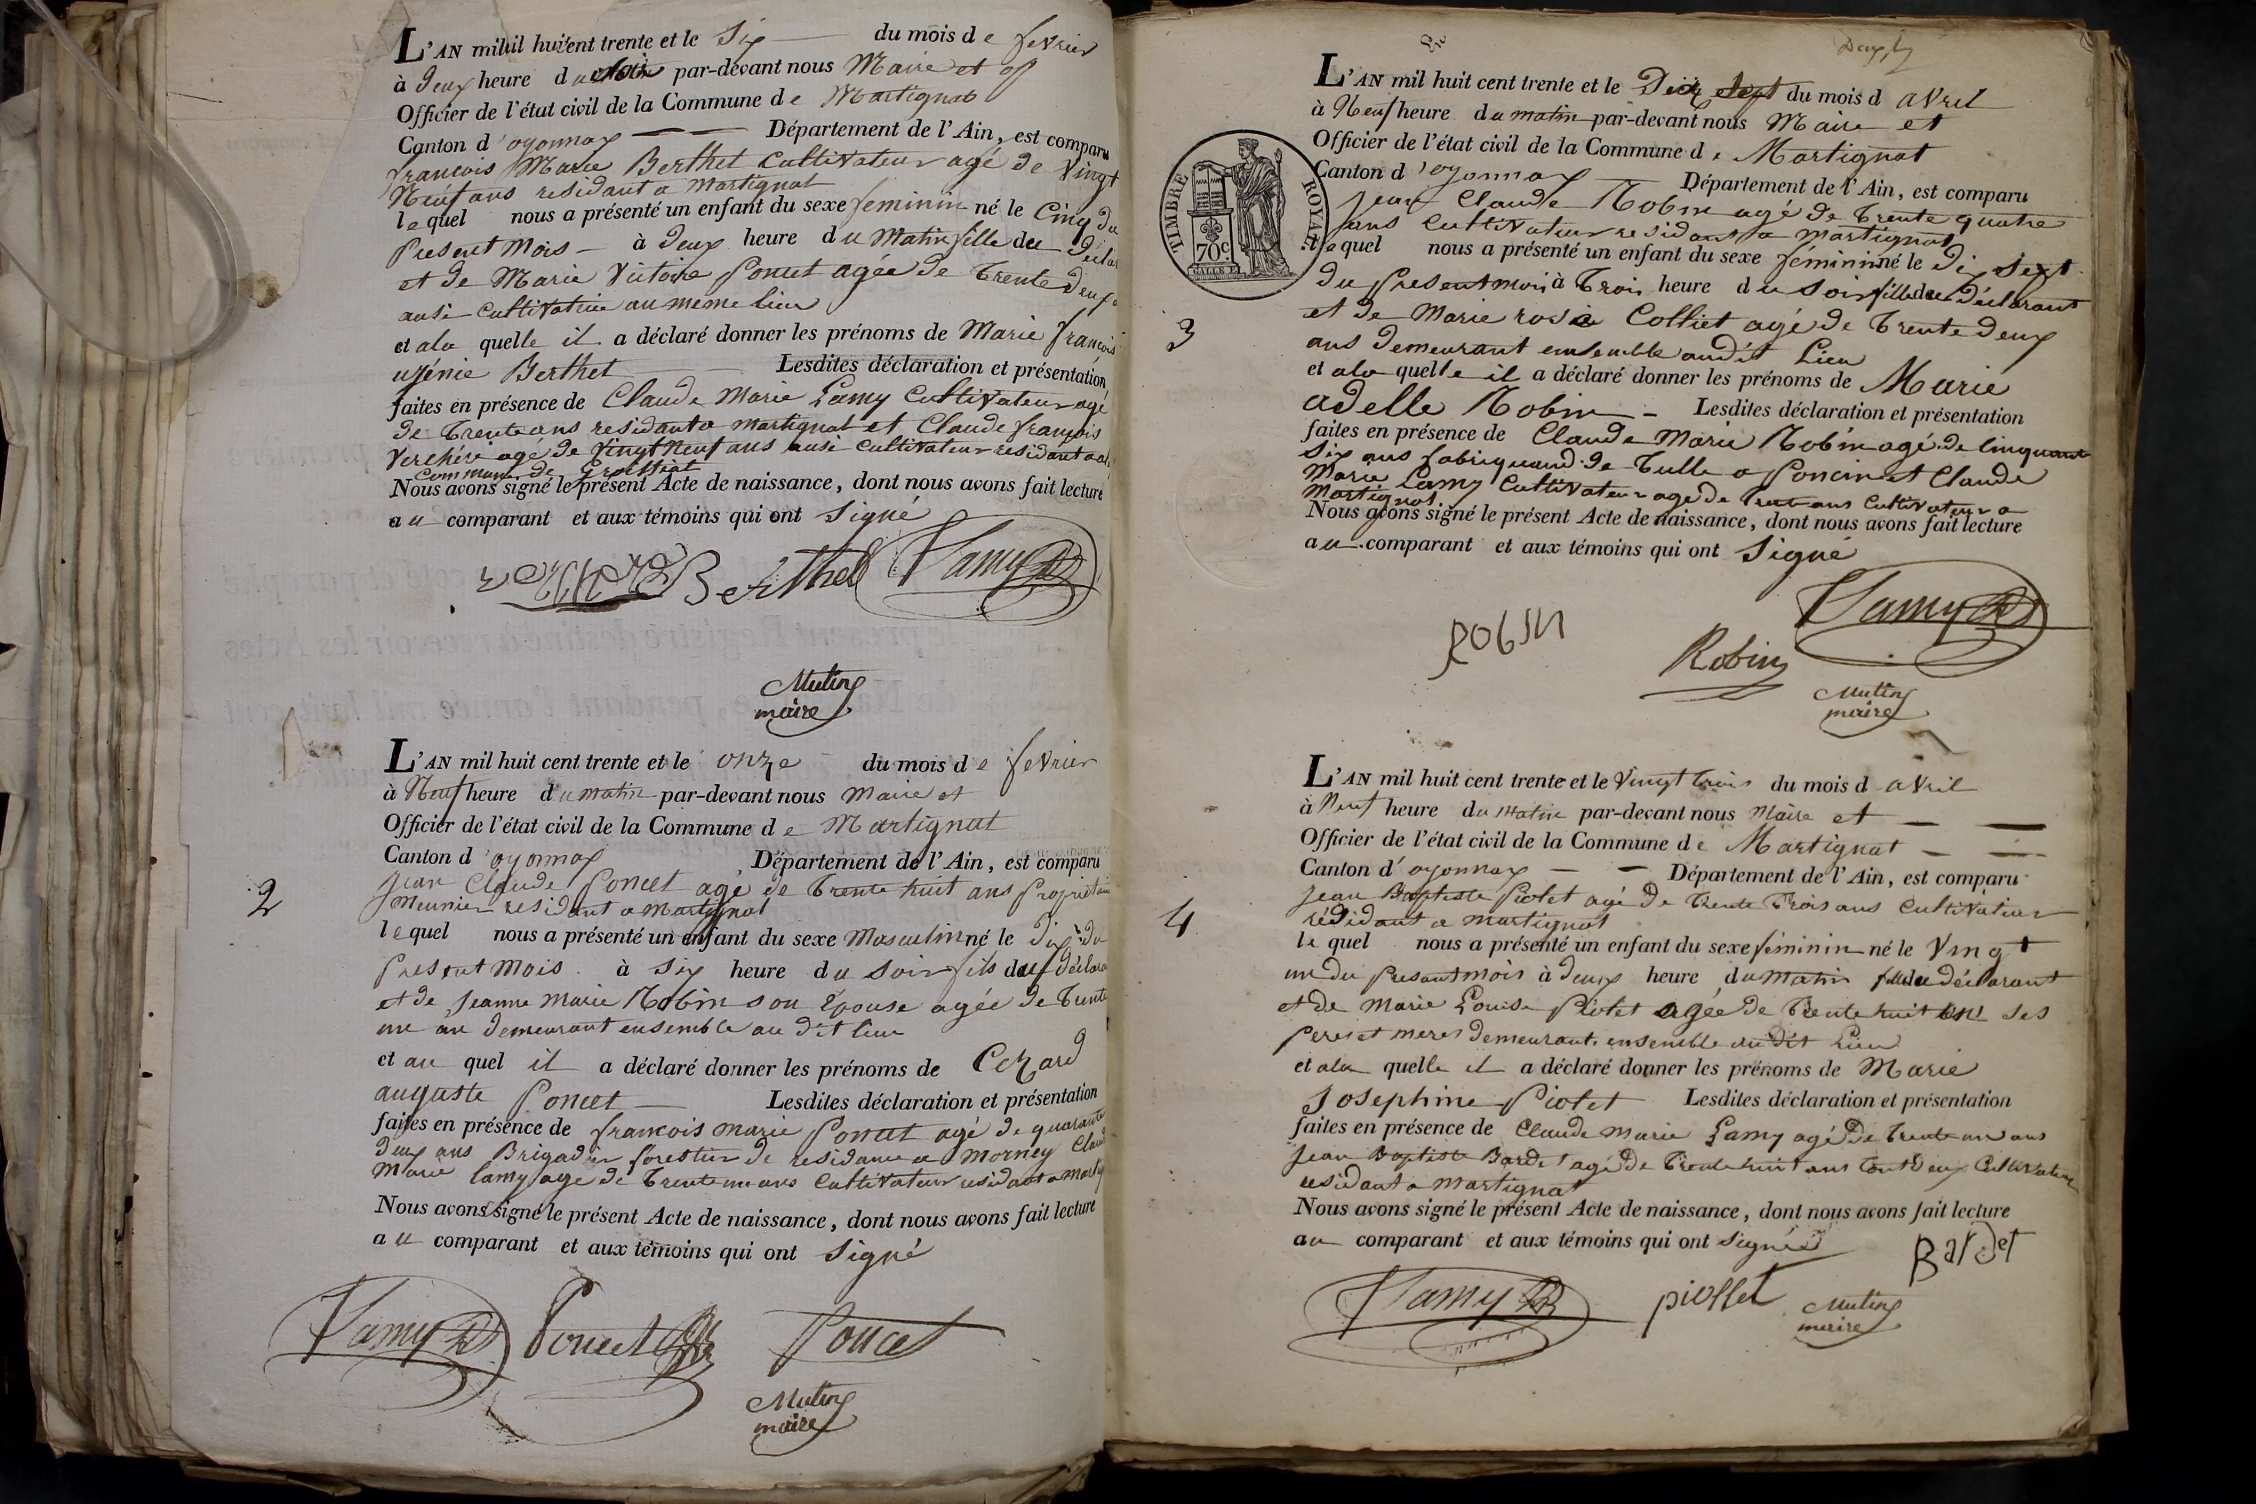 L'AN mil huit cent trente et le six du mois de fevrier
à deux heure du soir par-devant nous Maire et of
Officier de l'état civil de la Commune de Martignat
Canton d'oyonnax Département de l'Ain, est comparu
francois Marie Berthet Cultivateur agé de Vingt
Neuf ans residant a Martignat
le quel nous a présenté un enfant du sexe feminin né le Cinq du
Present Mois à deux heure du Matin fille du declar
et de Marie Victoire Poncet agée de Trente deux
ausi Cultivatrice au meme Lieu
et a la quelle il a déclaré donner les prénoms de Marie francois
ugénie Berthet Lesdites déclaration et présentation
faites en présence de Claude Marie Lamy Cultivateur agé
de Trente ans residant a Martignat et Claude francois
Verchére agé de Vingt Neuf ans ausi Cultivateur residant a la
Commune de Groissiat
Nous avons signé le présent Acte de naissance, dont nous avons fait lecture
au comparant et aux témoins qui ont Signé
Berthet Lamy
Mutin
maire
L'AN mil huit cent trente et le onze du mois de fevrier
à Neuf heure du matin par-devant nous Maire et
Officier de l'état civil de la Commune de Martignat
Canton d'oyonnax Département de l'Ain, est comparu
2
Jean Claude Poncet agé de Trente huit ans Proprietaire
Meunier residant a Martignat
le quel nous a présenté un enfant du sexe Masculin né le dix du
Present Mois à Six heure du Soir fils du déclara
et de Jeanne Marie Robin son Epouse agée de Trente
un an demeurant ensemble au dit lieu
et au quel il a déclaré donner les prénoms de Cezard
auguste Poncet Lesdites déclaration et présentation
faites en présence de francois marie Poncet agé de quarante
deux ans Brigadier forestier de residance a Morney Claude
Marie Lamy agé de Trente un ans Cultivateur residant a Marti
Nous avons signé le présent Acte de naissance, dont nous avons fait lecture
au comparant et aux témoins qui ont Signé
Lamy Poncet Poncet
Mutin
maire
TIMBRE ROYAL
70c
L'AN mil huit cent trente et le Dix Sept du mois d avril
à Neuf heure du matin par-devant nous Maire et
Officier de l'état civil de la Commune de Martignat
Canton d'oyonnax Département de l'Ain, est comparu
Jean Claude Robin agé de Trente quatre
ans Cultivateur residant a Martignat
le quel nous a présenté un enfant du sexe féminin né le dix sept
du Present mois à Trois heure du Soir fille du déclarant
3
et de Marie rose Colliet agé de Trente deux
ans Demeurant ensemble audit Lieu
et a la quelle il a déclaré donner les prénoms de Marie
adelle Robin Lesdites déclaration et présentation
faites en présence de Claude Marie Robin agé de Cinquante
Six ans fabriquand de Tulle a Poncin et Claude
Marie Lamy Cultivateur agé de Trente ans Cultivateur a
Martignat
Nous avons signé le présent Acte de naissance, dont nous avons fait lecture
au comparant et aux témoins qui ont Signé
Robin Robin Lamy
Mutin
maire
L'AN mil huit cent trente et le Vingt Trois du mois d avril
à Neuf heure du matin par-devant nous Maire et
Officier de l'état civil de la Commune de Martignat
Canton d'oyonnax Département de l'Ain, est comparu
Jean Baptiste Piolet agé De Trente Trois ans Cultivateur
4
résidant a Martignat
le quel nous a présenté un enfant du sexe féminin né le Vingt
un du Presant mois à deux heure du matin fille du déclarant
et de Marie Louise Piolet agée De Trente huit ans ses
Peres et meres Demeurant ensemble audit Lieu
et a la quelle il a déclaré donner les prénoms de Marie
Josephine Piolet Lesdites déclaration et présentation
faites en présence de Claude Marie Lamy agé De Trente un ans
Jean Baptiste Bardet agé De Trente huit ans Tout Deux Cultivateur
residant a Martignat
Nous avons signé le présent Acte de naissance, dont nous avons fait lecture
au comparant et aux témoins qui ont signé
Lamy piollet Bardet
Mutin
maire